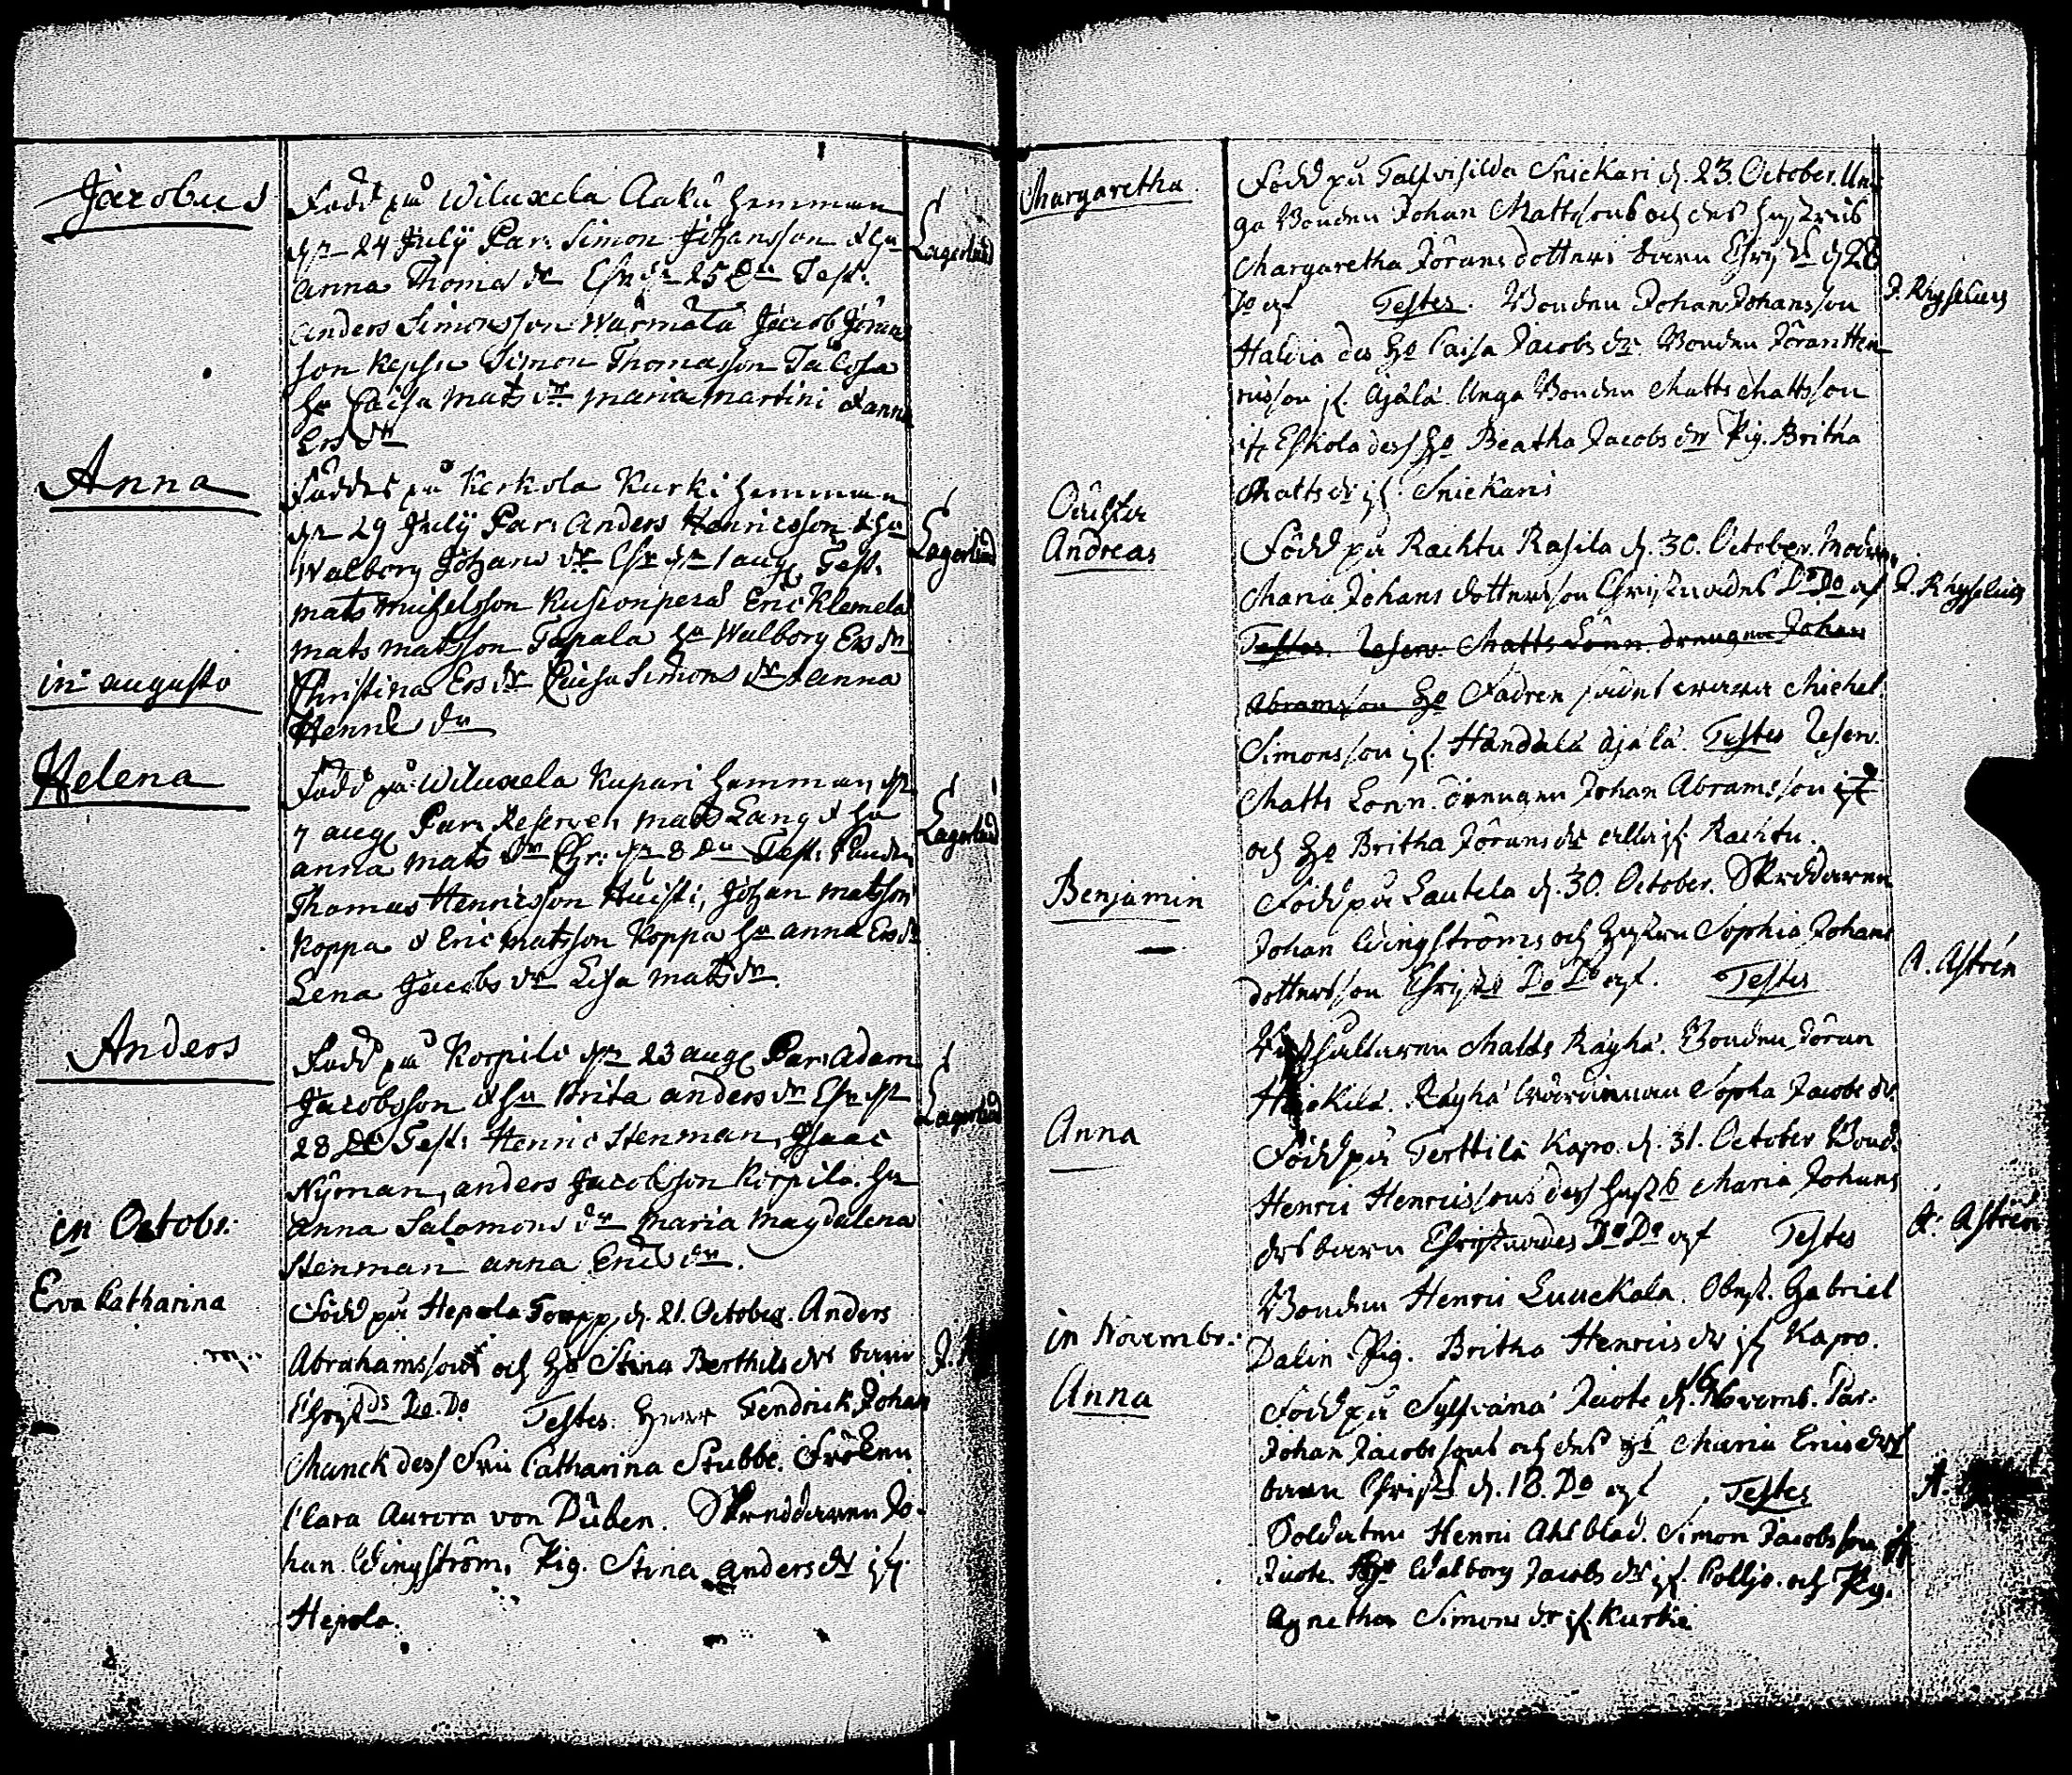 Jacobus
Född på Wiluxela Aaku hemman
dn 24 Julÿ Par. Simon Johansson & hu
Anna Thomæ dr Chr dn 25 Du Test.
Anders Simonsson Wärmälä Jacob Jöran
son Kepsu Simon Thomasson Jacosa
hu Caisa Mats dr Maria Martini & Anna
Ers dr
Lagerlund
Anna
Föddes på Kerkola Kurki hemman
dn 29 Julÿ Par. Anders Henricsson & hu
Walborg Johans dr Chr dn 1 aug Test.
Mats Michelsson Kusionperä Eric Klemela
Mats Matsson Tapala hu Walborg Ers dr
Christina Ers dr Caisa Simons dr & Anna
Henric dr
Lagerlund
in augusto
Helena
Född på Wiluxela Kupari hemman dn
7 aug Par. Reserven Mats Lang & hu
Anna Mats dr Chr. dn 8 Du Test. Bonden
Thomas Henricsson Huisti, Johan Matsson
Koppa & Eric Matsson Koppa hu Anna Ers dr
Lena Jacobs dr Lisa Mats dr.
Lagerlund
Anders
Född på Korpilo dn 23 aug Par. Adam
Jacobsson & hu Brita Anders dr Chr dn
28 De Test. Henric Stenman, Isaac
Nÿman, Anders Jacobsson Korpilo. hu
Anna Salomons dr Maria Magdalena
Stenman Anna Erics dr.
Lagerlund
in Octobr:
Eva Catharina
Född på Hepola Torpp d. 21. October. Anders
Abrahamssons och ho Stina Berthils drs barn
Christds Do. Do Testes. Herr Fendrick Johan
Munck dess Fru Catharina Stubbe. Fröken
Clara Aurora von Düben. Skreddaren Jo-
han Wingström, Pig. Stina Anders dr if
Hepola.
Margaretha
Född på Talfvisilda Snickari d. 23. October. Un-
ga Bonden Johan Mattssons och des hustrus
Margaretha Jörans dotters barn Christds d 26
Do af Testes. Bonden Johan Johansson
Haldia des ho Caisa Jacobs dr. Bonden Jöran Hen
ricsson if. Äjälä. Unga Bonden Matts Mattsson
if Eskola dess ho Beatha Jacobs dr Pig. Britha
Matts dr if. Snickari
J. Rhyzelius
Oächta
Andreas
Född på Rachtu Rasila d. 30. October. Modren
Maria Johans dotters son Christnades Do Do af
Testes. Reserv. Matts Lönn drengen Johan
Abramsson ho Fadren sades wara Michel
Simonsson if. Handala Äjälä. Testes Reserv.
Matts Lönn. drengen Johan Abramsson if
och ho Britha Jörans dr alla if. Rachtu.
J. Rhyzelius
Benjamin
Född på Lautela d. 30. October. Skreddaren
Johan Wingströms och hustru Sophia Johans
dotters son Christs Do Do af. Testes
Matts Räyhä. Bonden Jöran
Heickilä. Räyhä Sopha Jacobs dr.
A. Astrén
Anna
Född på Terttilä Kapo. d. 31. October Bond.
Henric Henricssons dess hust6 Maria Johans
drs barn Christnades Do Do af Testes
Bonden Henric Luuckala. Gabriel
Dalin. Pig. Britha Henrics dr if Kapo.
A. Astrén
in Novembr:
Anna
Född på Sylfvänä Juote d. 16 Novemb. Par.
Johan Jacobssons och des hs Maria Erics drs
barn Christs d. 18. Do af Testes
Soldaten Henric Ahlblad. Simon Jacobsson if
Juote. Hs Walborg Jacobs dr if. Polljo. och Pig.
Agnetha Simons dr if. Kurkia
A.